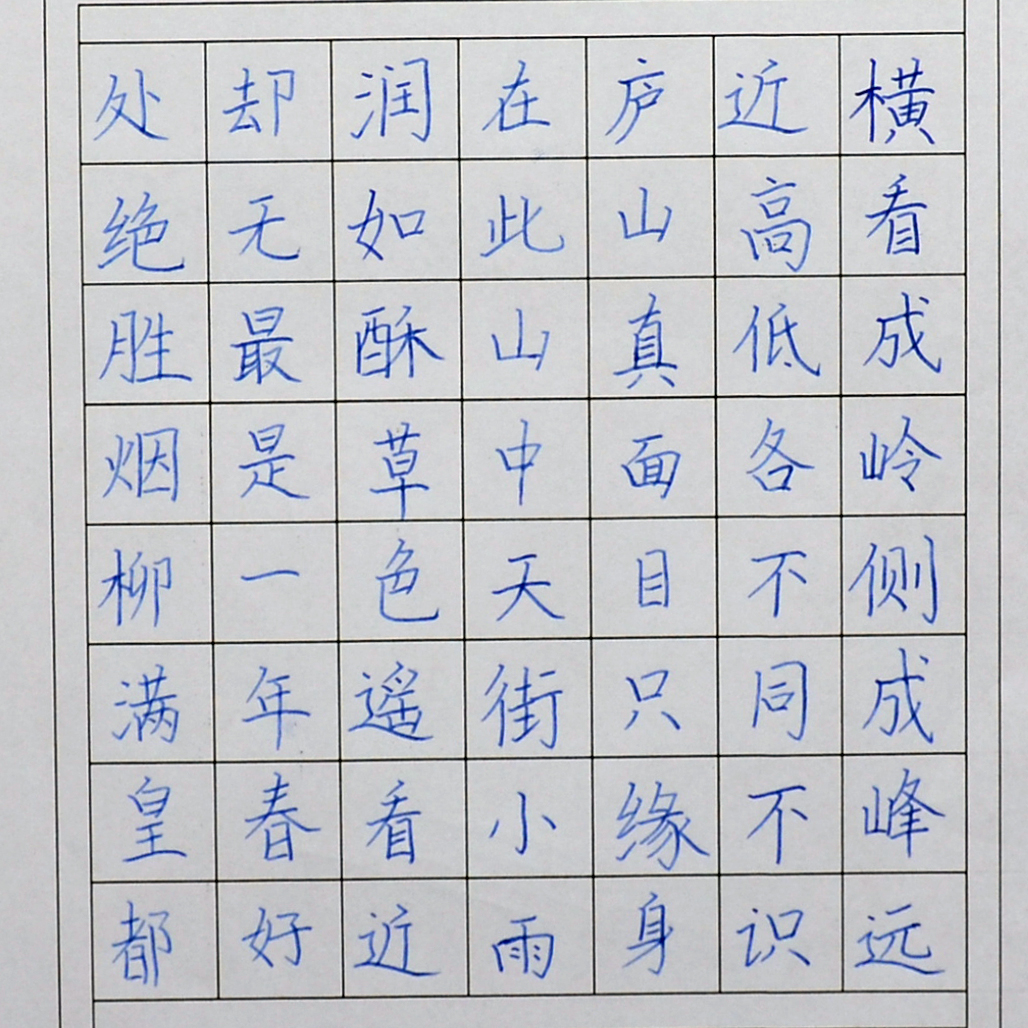 横看成岭侧成峰远
近高低各不同不识
庐山真面目只缘身
在此山中天街小雨
润如酥草色遥看近
却无最是一年春好
处绝胜烟柳满皇都